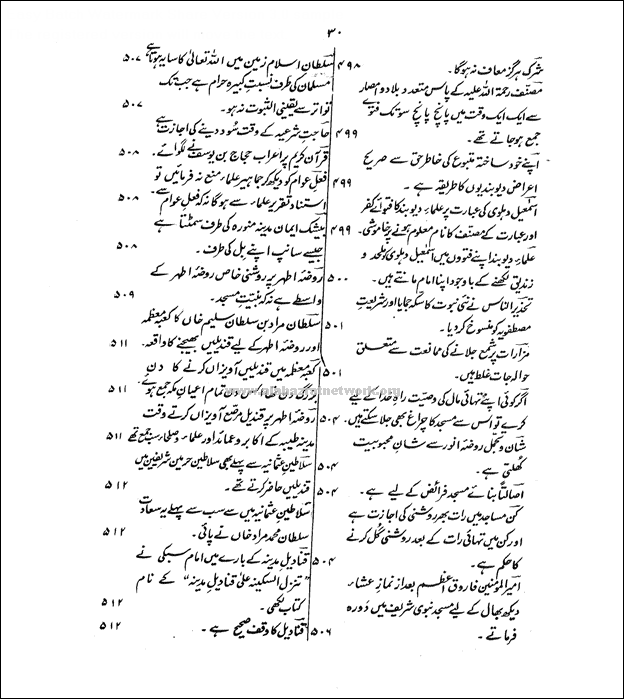 ۳۰
شرک ہرگز معاف نہ ہوگا۔ ۴۹۸
مصنف رحمۃ اللہ علیہ کے پاس متعدد بلاد و امصار
سے ایک ایک وقت میں پانچ پانچ سو تک فتوے
جمع ہوجاتے تھے۔ ۴۹۹
اپنے خود ساختہ متبوع کی خاطر حق سے صریح
اعراض دیوبندیوں کا طریقہ ہے۔ ۴۹۹
اسمٰعیل دہلوی کی عبارت پر علماءِ دیوبند کا فتوائے کفر
اور عبارت کے مصنف کا نام معلوم ہونے پر خاموشی۔ ۴۹۹
علماءِ دیوبند اپنے فتووں میں اسمٰعیل دہلوی کو ملحد و
زندیق لکھنے کے باوجود اپنا امام مانتے ہیں۔ ۵۰۰
تحذیر الناس نے نئی نبوت کا سکہ جمایا اور شریعتِ
مصطفویہ کو منسوخ کردیا۔ ۵۰۱
مزارات پر شمع جلانے کی ممانعت سے متعلق
حوالہ جات غلط ہیں۔ ۵۰۱
اگر کوئی اپنے تہائی مال کی وصیت راہِ خدا کے لیے
کرے تو اس سے مسجد کا چراغ بھی جلا سکتے ہیں۔ ۵۰۴
شان و تجمل روضۂ انور سے شانِ محبوبیت
کھلتی ہے۔ ۵۰۴
اصالتاً بنائے مسجد فرائض کے لیے ہے۔ ۵۰۴
کن مساجد میں رات بھر روشنی کی اجازت ہے
اور کن میں تہائی رات کے بعد روشنی گُل کرنے
کا حکم ہے۔ ۵۰۴
امیر المؤمنین فاروق اعظم بعد از نمازِ عشاء
دیکھ بھال کے لیے مسجد نبوی شریف میں دَورہ
فرماتے۔ ۵۰۶
سلطان اسلام زمین میں اللہ تعالیٰ کا سایہ ہوتا ہے ۵۰۷
مسلمان کی طرف نسبتِ کبیرہ حرام ہے جب تک
تواتر سے یقینی الثبوت نہ ہو۔ ۵۰۷
حاجتِ شرعیہ کے وقت سُود دینے کی اجازت ہے
قرآن کریم پر اعراب حجاج بن یوسف نے لگوائے۔ ۵۰۸
فعلِ عوام کو دیکھ کر جب جماہیر علماء منع نہ فرمائیں تو
استناد تقریرِ علماء سے ہوگا نہ کہ فعلِ عوام سے۔ ۵۰۸
بیشک ایمان مدینہ منورہ کی طرف سمٹتا ہے
جیسے سانپ اپنے بل کی طرف۔ ۵۰۸
روضۂ اطہر پر روشنی خاص روضۂ اطہر کے
واسطے ہے نہ کہ بنیتِ مسجد۔ ۵۰۹
سلطان مراد بن سلطان سلیم خاں کا کعبۂ معظمہ
اور روضۂ اطہر کے لیے قندیلیں بھیجنے کا واقعہ۔ ۵۱۱
کعبۂ معظمہ میں قندیلیں آویزاں کرنے کا دن
بزرگ دن تھا اس دن تمام اعیانِ مکہ جمع ہوئے ۵۱۱
روضۂ اطہر پر قندیل مرصع آویزاں کرتے وقت
مدینہ طیبہ کے اکابر و عمائد اور علماء و صلحاء سب جمع تھے ۵۱۱
سلاطین عثمانیہ سے پہلے بھی سلاطین حرمین شریفین میں
قندیلیں حاضر کرتے تھے۔ ۵۱۲
سلاطین عثمانیہ میں سے سب سے پہلے یہ سعادت
سلطان محمد مراد خاں نے پائی۔ ۵۱۲
قنادیلِ مدینہ کے بارے میں امام سبکی نے
"تنزل السکینہ علیٰ قنادیلِ مدینہ" کے نام
کتاب لکھی۔ ۵۱۲
قنادیل کا وقف صحیح ہے۔ ۵۱۲